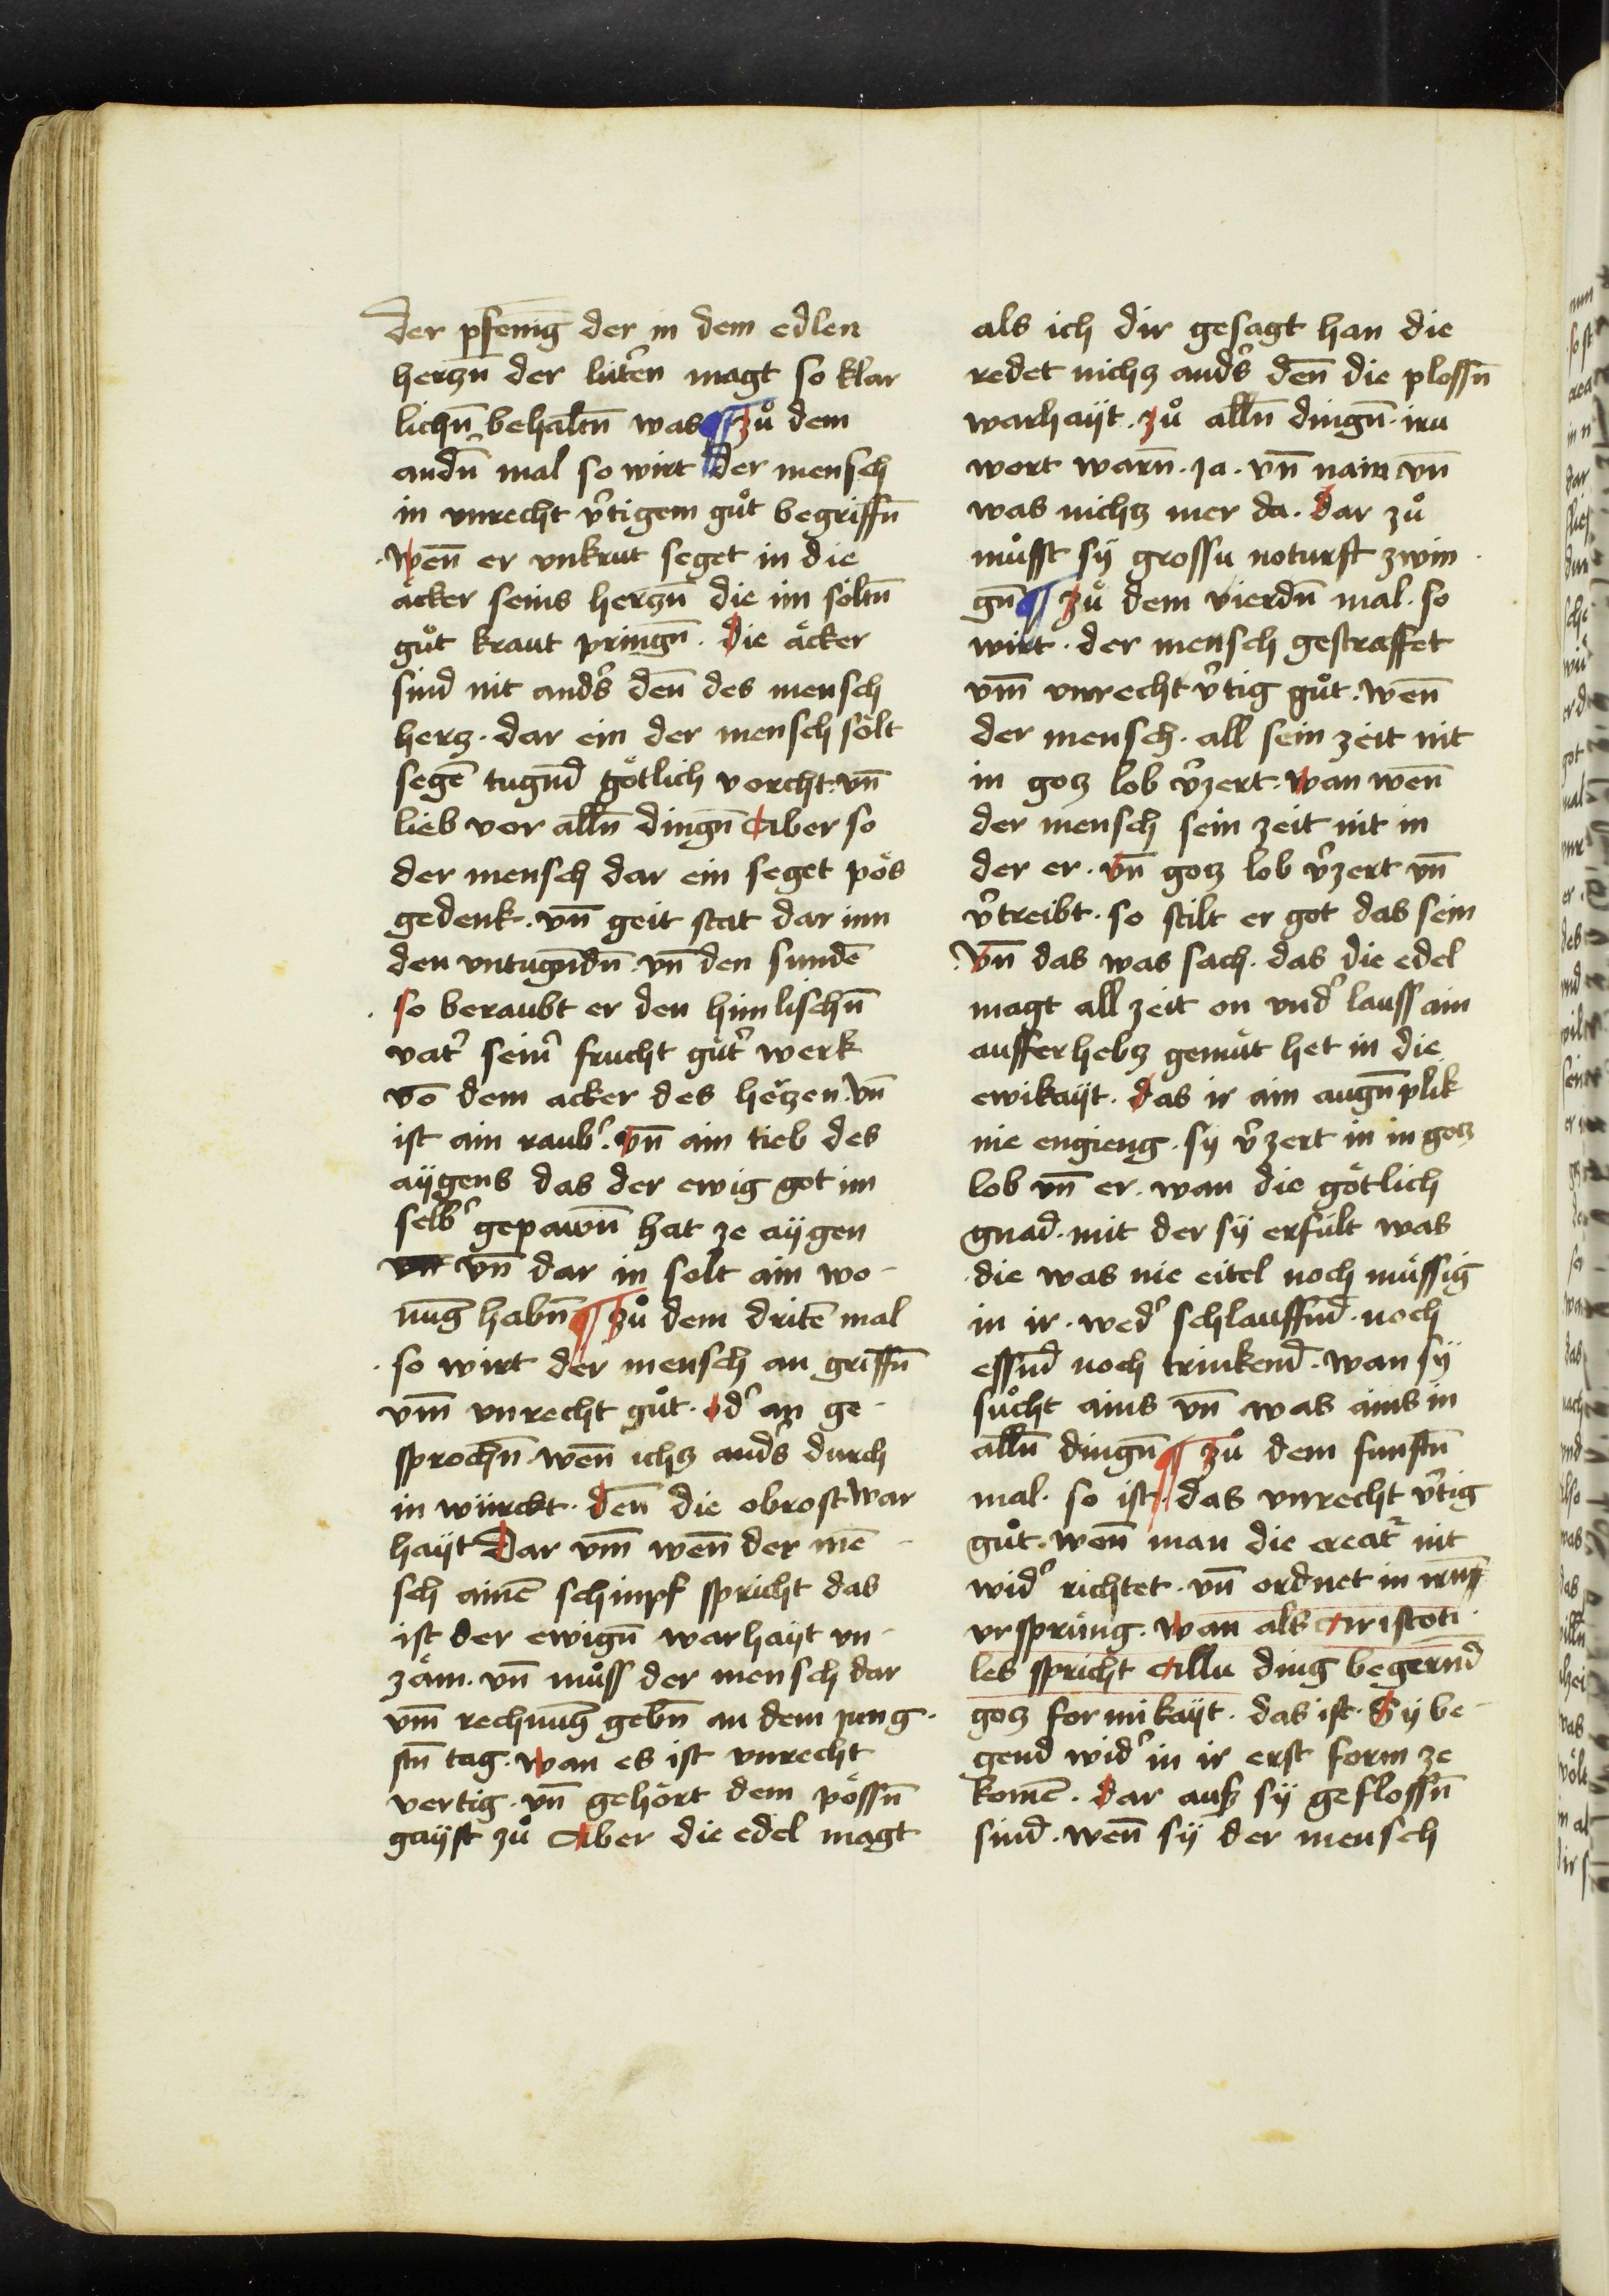 der pfenīg der in dem edlen
herczn̄ der lut͛en magt so klar
lichn̄ behaltn̄ was ¶ zů dem
andn̄ mal so wirt der mensch
in vnrecht v͛tigem gůt begriffn̄
· wen̄ er vnkrut seget in die
äcker seins herczn̄ die im söltn̄
gůt kraut pringn̄ · die äcker
sind nit and͛s den̄ des mensch
hercz · dar ein der mensch sölt
segē tugn̄d götlich vorcht · vn̄
lieb vor alln̄ dingn̄ Aber so
der mensch dar ein seget pös
gedenk · vn̄ geit stat dar inn
den vntugn̄dn̄ · vn̄ den sundē
· so beraubt er den himlischn̄
vat͛ sein͛ frucht gůt͛ werk
vō dem acker des herczen · vn̄
ist ain raub͛ · vn̄ ain tieb des
aÿgens das der ewig got im
selb͛ gepawn̄ hat ze aÿgen
vn̄ dar in solt ain wo-
nūg habn̄ ¶ zů dem dritē mal
· so wirt der mensch an griffn̄
vm̄ vnrecht gůt · od͛ an ge-
sprochn̄ · wen̄ ichcz and͛s durch
in würckt · den̄ die obrost war
haÿt Dar vm̄ wen̄ der mē-
sch ainē schimpf spricht das
ist der ewign̄ warhaÿt vn-
zäm · vn̄ můss der mensch dar
vm̄ rechnūg gebn̄ an dem jung-
stn̄ tag · wan es ist vnrecht
vertig · vn̄ gehört dem pössn̄
gaÿst zů Aber die edel magt
als ich dir gesagt han die
redet nichcz and͛s den̄ die plossn̄
warhaÿt · zů alln̄ dingn̄ · iru
wort warn̄ · ja · vn̄ nain vn̄
was nichcz mer da · dar zů
můsst sÿ grossu noturft zwin-
gn̄ ¶ zů dem vierdn̄ mal · so
wirt · der mensch gestraffet
vm̄ vnrecht v͛tig gůt · wen̄
der mensch · all sein zeit nit
in gocz lob v͛zert · wan wen̄
der mensch sein zeit nit in
der er · vn̄ gocz lob v͛zert vn̄
v͛treibt · so stilt er got das sein
· vn̄ das was sach · das die edel
magt all zeit on vnd͛ lauss ain
aufferhebcz gemüt het in die
ewikaÿt · das ir ain augn̄plik
nie engieng · sÿ v͛zert in in gocz
lob vn̄ er · wan die götlich
gnad · mit der sÿ erfült was
· die was nie eitel noch müssig
in ir · wed͛ schlauffn̄d · noch
essn̄d noch trinkend · wan sÿ
sůcht ains vn̄ was ains in
alln̄ dingn̄ ¶ zů dem funftn̄
mal · so ist · das vnrecht v͛tig
gůt · wen̄ man die creat͛ nit
wid͛ richtet · vn̄ ordnet in irn̄
vrsprüng · wan als Aristoti-
les spricht Allu ding begern̄d
gocz formikaÿt · das ist · Sÿ be-
gend wid͛ in ir erst form ze
komē · dar auß sÿ geflossn̄
sind · wen̄ sÿ der mensch